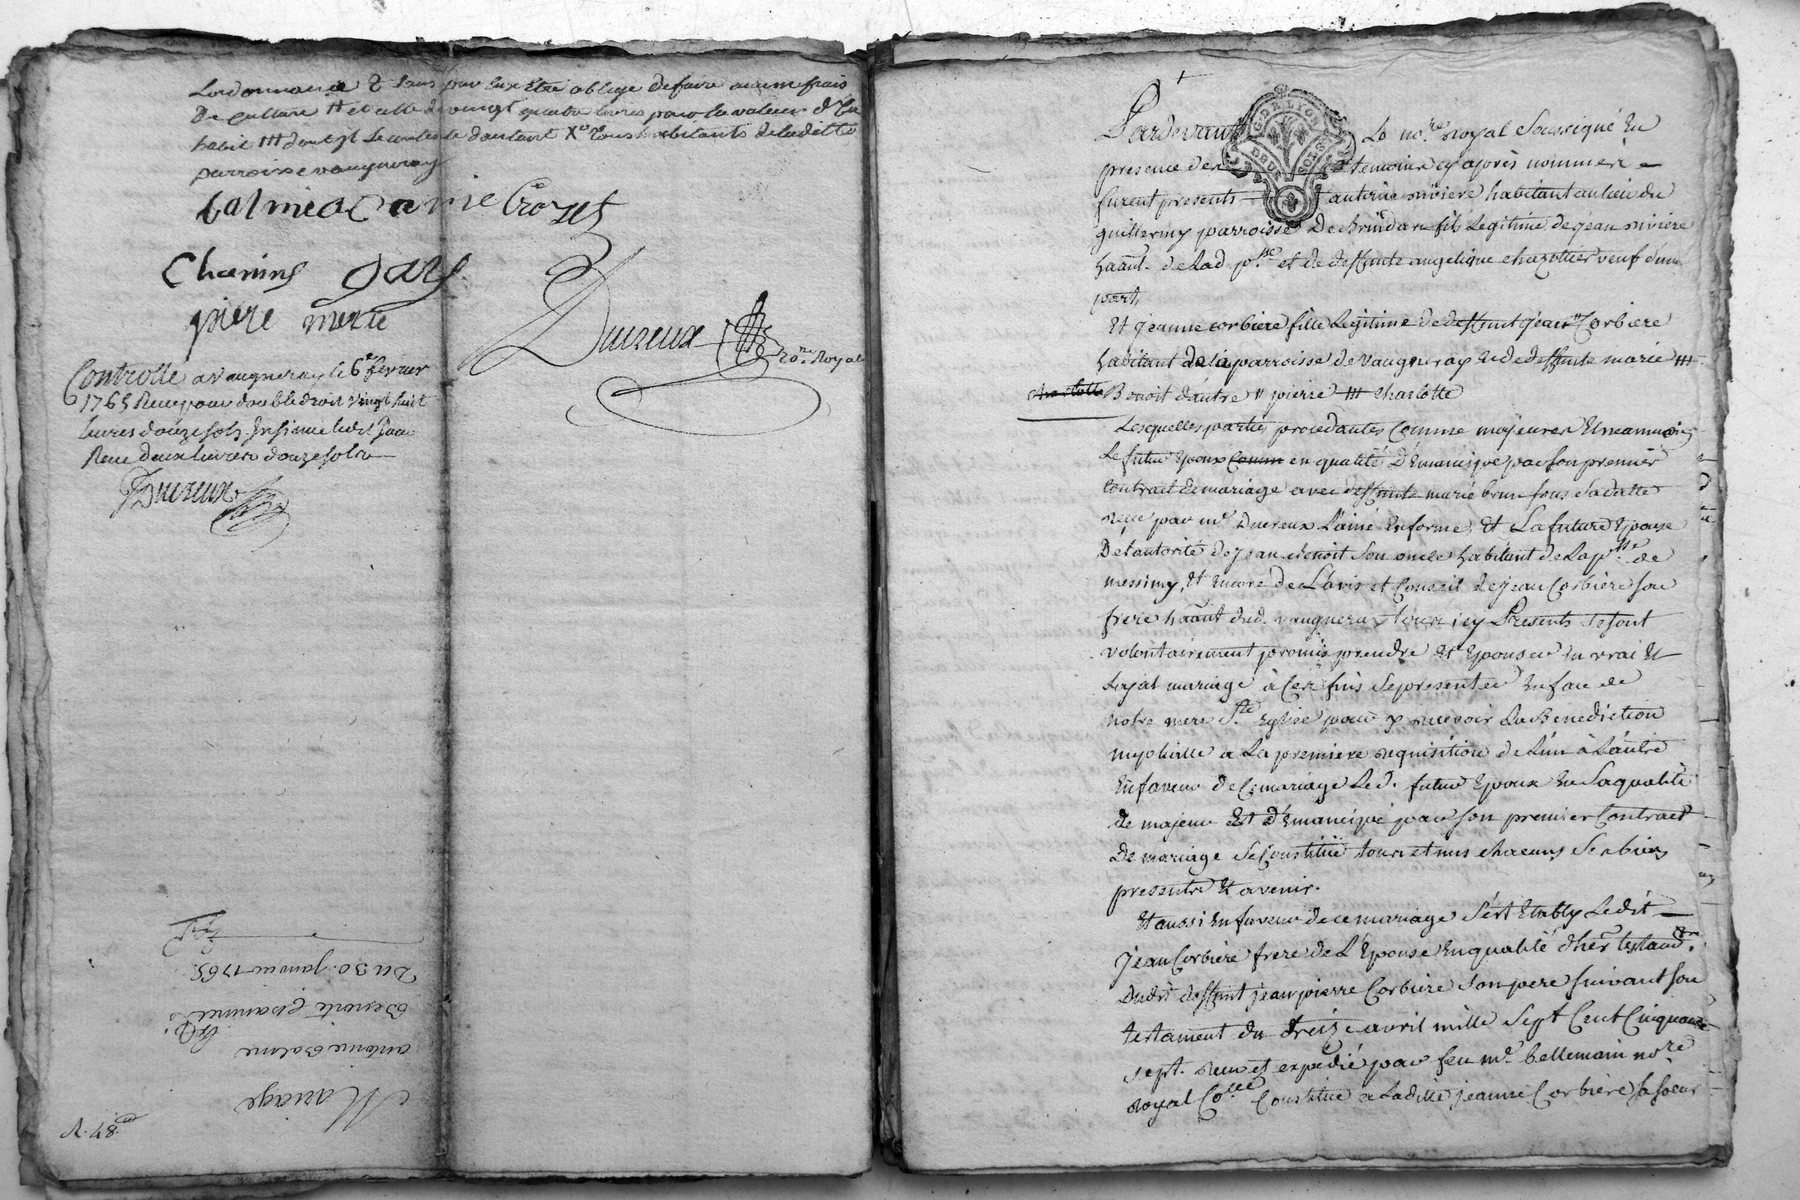 Lordonnance & sans pour eux être obligé defaire aucune frais
De culture # et celle de vingt quatre livres pour la valeur d'un
habit ### dont et le contenu dautant Xe tous habitants de ladite
parroisse vaugneray
balmea Crozet
Chanins Gars
piere merle
Duxeux no.re Royal
Controlle a Vaugneray le 6e fevrier
1765 Reçu pour double droit vingt huit
livres douze sols. Insinué ledit jour
Reçu deux livres douze sols
Duxeux
N. 87.e
Mariage
antoine Balme
Benoite
Du 30. janvier 1765.
Pardevant Le no.re Royal Soussigné En
presence des temoins cy après nommés
furent presents antoine riviere habitant au lieu du
guillermy parroisse De Brindas fils Legitime de jean riviere
haant. de Lad. p.sse et de deffunte angelique chazottier veuf dune
part,
Et jeanne corbiere fille Legitime de deffunt jean # Corbiere
habitant de la parroisse de Vaugneray Et de deffunte marie ###
Benoit d'autre # pierre ### charlotte
Lesquelles parties procedantes Comme majeures Et neanmoins
Le futur Epoux en qualité D'Emancipé par son premier
Contract de mariage avec deffunte marie brun sous sa datte
reçu par m.e Duxeux L'ainé En forme, Et La future Epouse
De l'autorité de jean Benoit Son oncle habitant de La p.sse de
messimy, Et Encore de L'avis et Conseil de jean Corbiere son
frere haant dud. vaugneray tous icy Presents se sont
volontairement promis prendre Et Epouser En vrai Et
Loyal mariage à Ces fins se presenter En face de
notre mere S.te Eglise pour y recevoir La Benediction
nuptialle a La premiere requisition de L'un à L'autre
En faveur de Ce mariage Led. futur Epoux En sa qualité
de majeur Et D'Emancipé par son premier Contract
De mariage Se Constitue tous et uns chacuns Ses biens
presents Et avenir.
Et aussi En faveur de ce mariage s'est Etably Ledit
jean Corbiere frere de L'Epouse En qualité d'her. testam.re
Dudit deffunt jean pierre Corbiere son pere suivant son
testament du treize avril mille Sept Cent Cinquante
sept. reçu et expedié par feu m.e bellemain no.re
Royal Constitue a Laditte jeanne Corbiere sa soeur